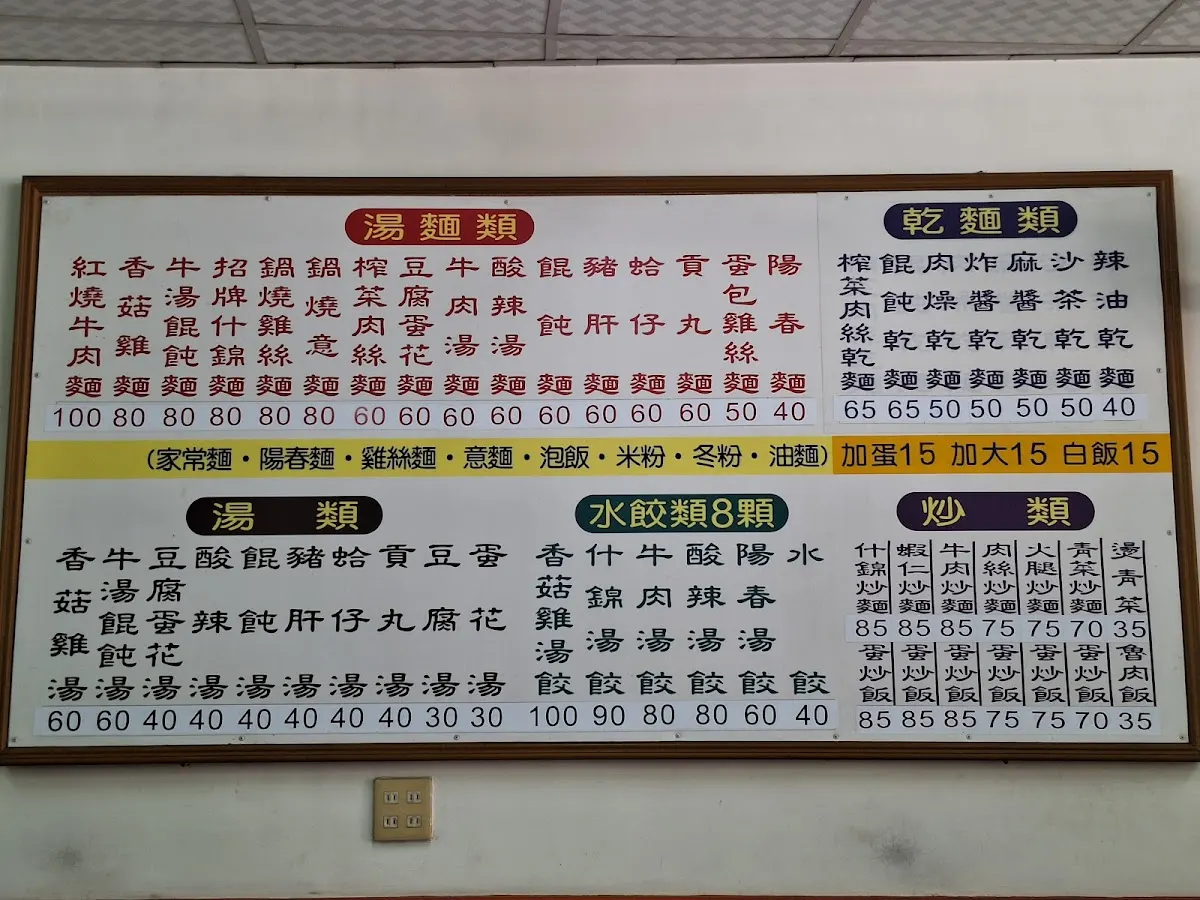 湯麵類
紅燒牛肉麵 100
香菇雞麵 80
牛湯餛飩麵 80
招牌什錦麵 80
鍋燒雞絲麵 80
鍋燒意麵 80
榨菜肉絲麵 60
豆腐蛋花麵 60
牛肉湯麵 60
酸辣湯麵 60
餛飩麵 60
豬肝麵 60
蛤仔麵 60
貢丸麵 60
蛋包雞絲麵 50
陽春麵 40
乾麵類
榨菜肉絲乾麵 65
餛飩乾麵 65
肉燥乾麵 50
炸醬乾麵 50
麻醬乾麵 50
沙茶乾麵 50
辣油乾麵 40
(家常麵・陽春麵・雞絲麵・意麵・泡飯・米粉・冬粉・油麵)
加蛋15 加大15 白飯15
湯類
香菇雞湯 60
牛湯餛飩湯 60
豆腐蛋花湯 40
酸辣湯 40
餛飩湯 40
豬肝湯 40
蛤仔湯 40
貢丸湯 40
豆腐湯 30
蛋花湯 30
水餃類8顆
香菇雞湯餃 100
什錦湯餃 90
牛肉湯餃 80
酸辣湯餃 80
陽春湯餃 60
水餃 40
炒類
什錦炒麵 85
蝦仁炒麵 85
牛肉炒麵 85
肉絲炒麵 75
火腿炒麵 75
青菜炒麵 70
燙青菜 35
蛋炒飯 85
蛋炒飯 85
蛋炒飯 85
蛋炒飯 75
蛋炒飯 75
蛋炒飯 70
魯肉飯 35